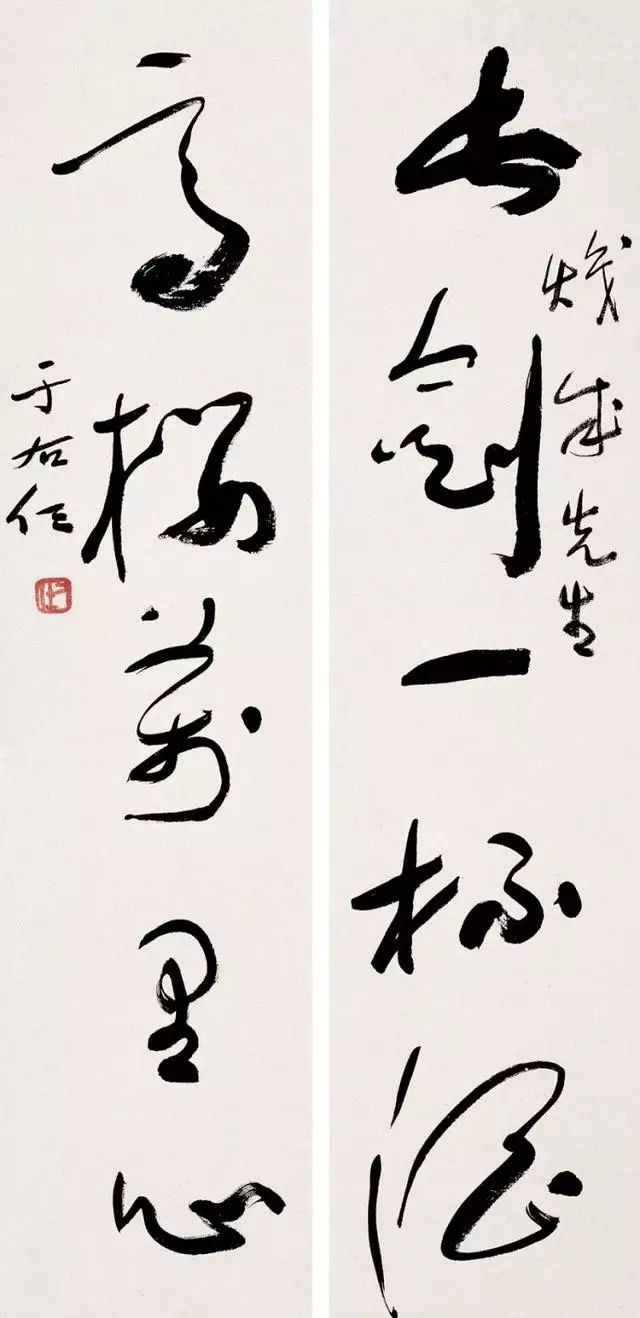 长剑一杯酒
成先生
高楼万里心
于右任